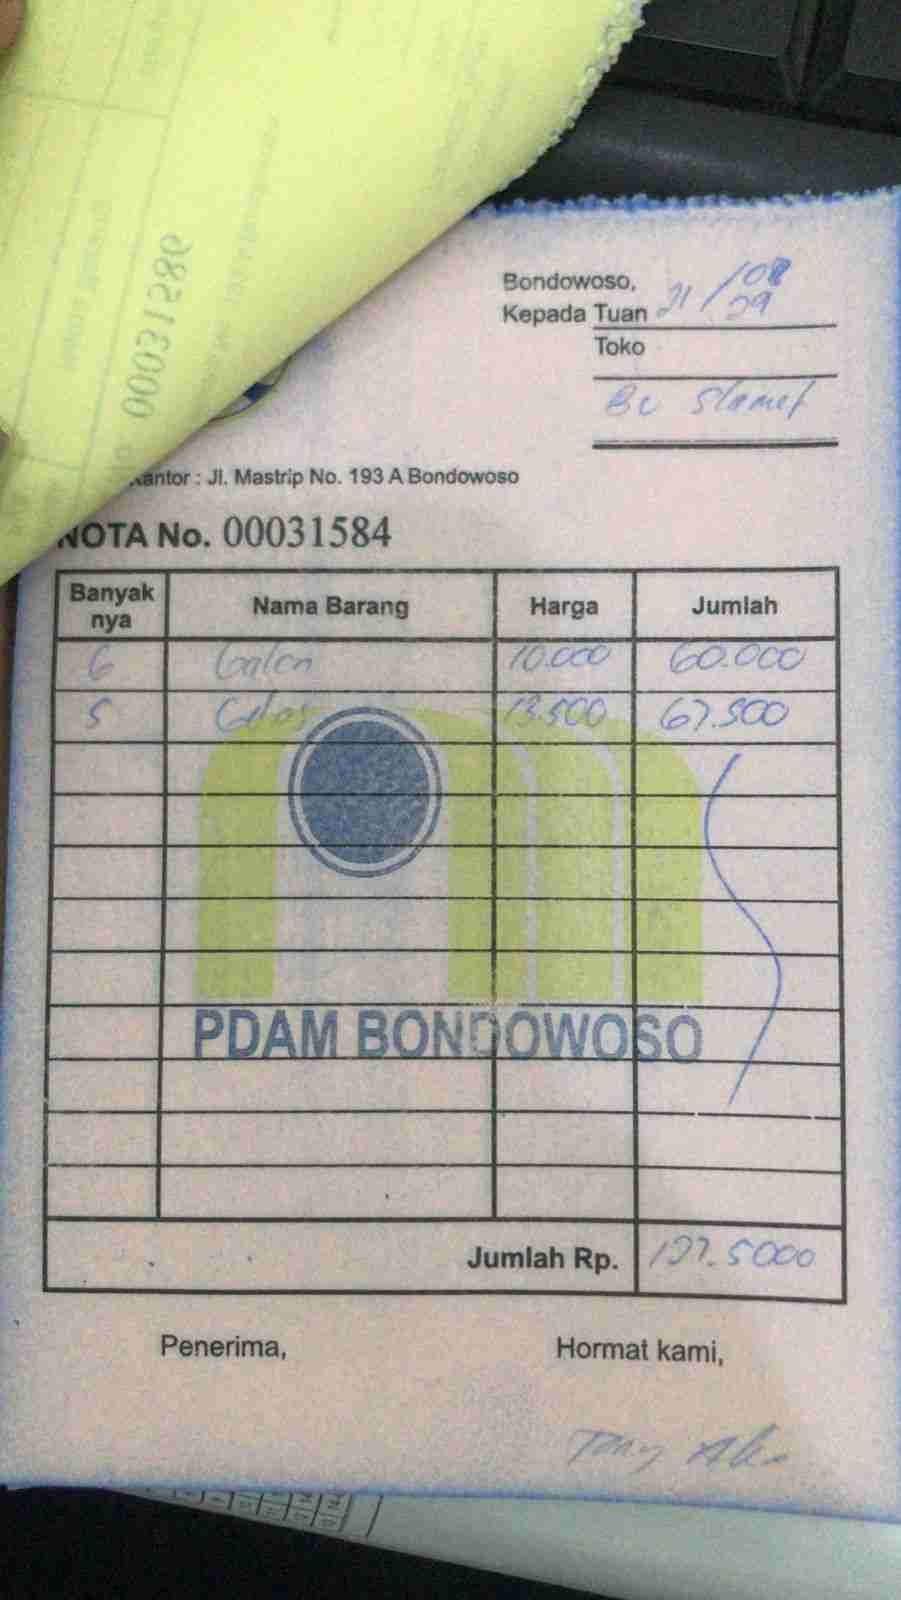 00031586
Bondowoso, 21/08
Kepada Tuan 29
Toko
Bu Slamet
Kantor : Jl. Mastrip No. 193 A Bondowoso
NOTA No. 00031584
Banyak nya Nama Barang Harga Jumlah
6 Galon 10.000 60.000
5 Gelas 13.500 67.500
PDAM BONDOWOSO
Jumlah Rp. 127.5000
Penerima, Hormat kami,
Tony